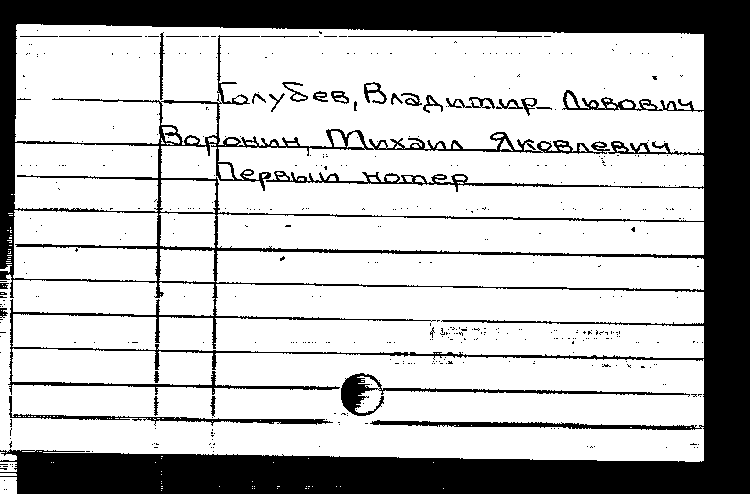 Голубев, Владимир Львович
Воронин, Михаил Яковлевич
Первый номер